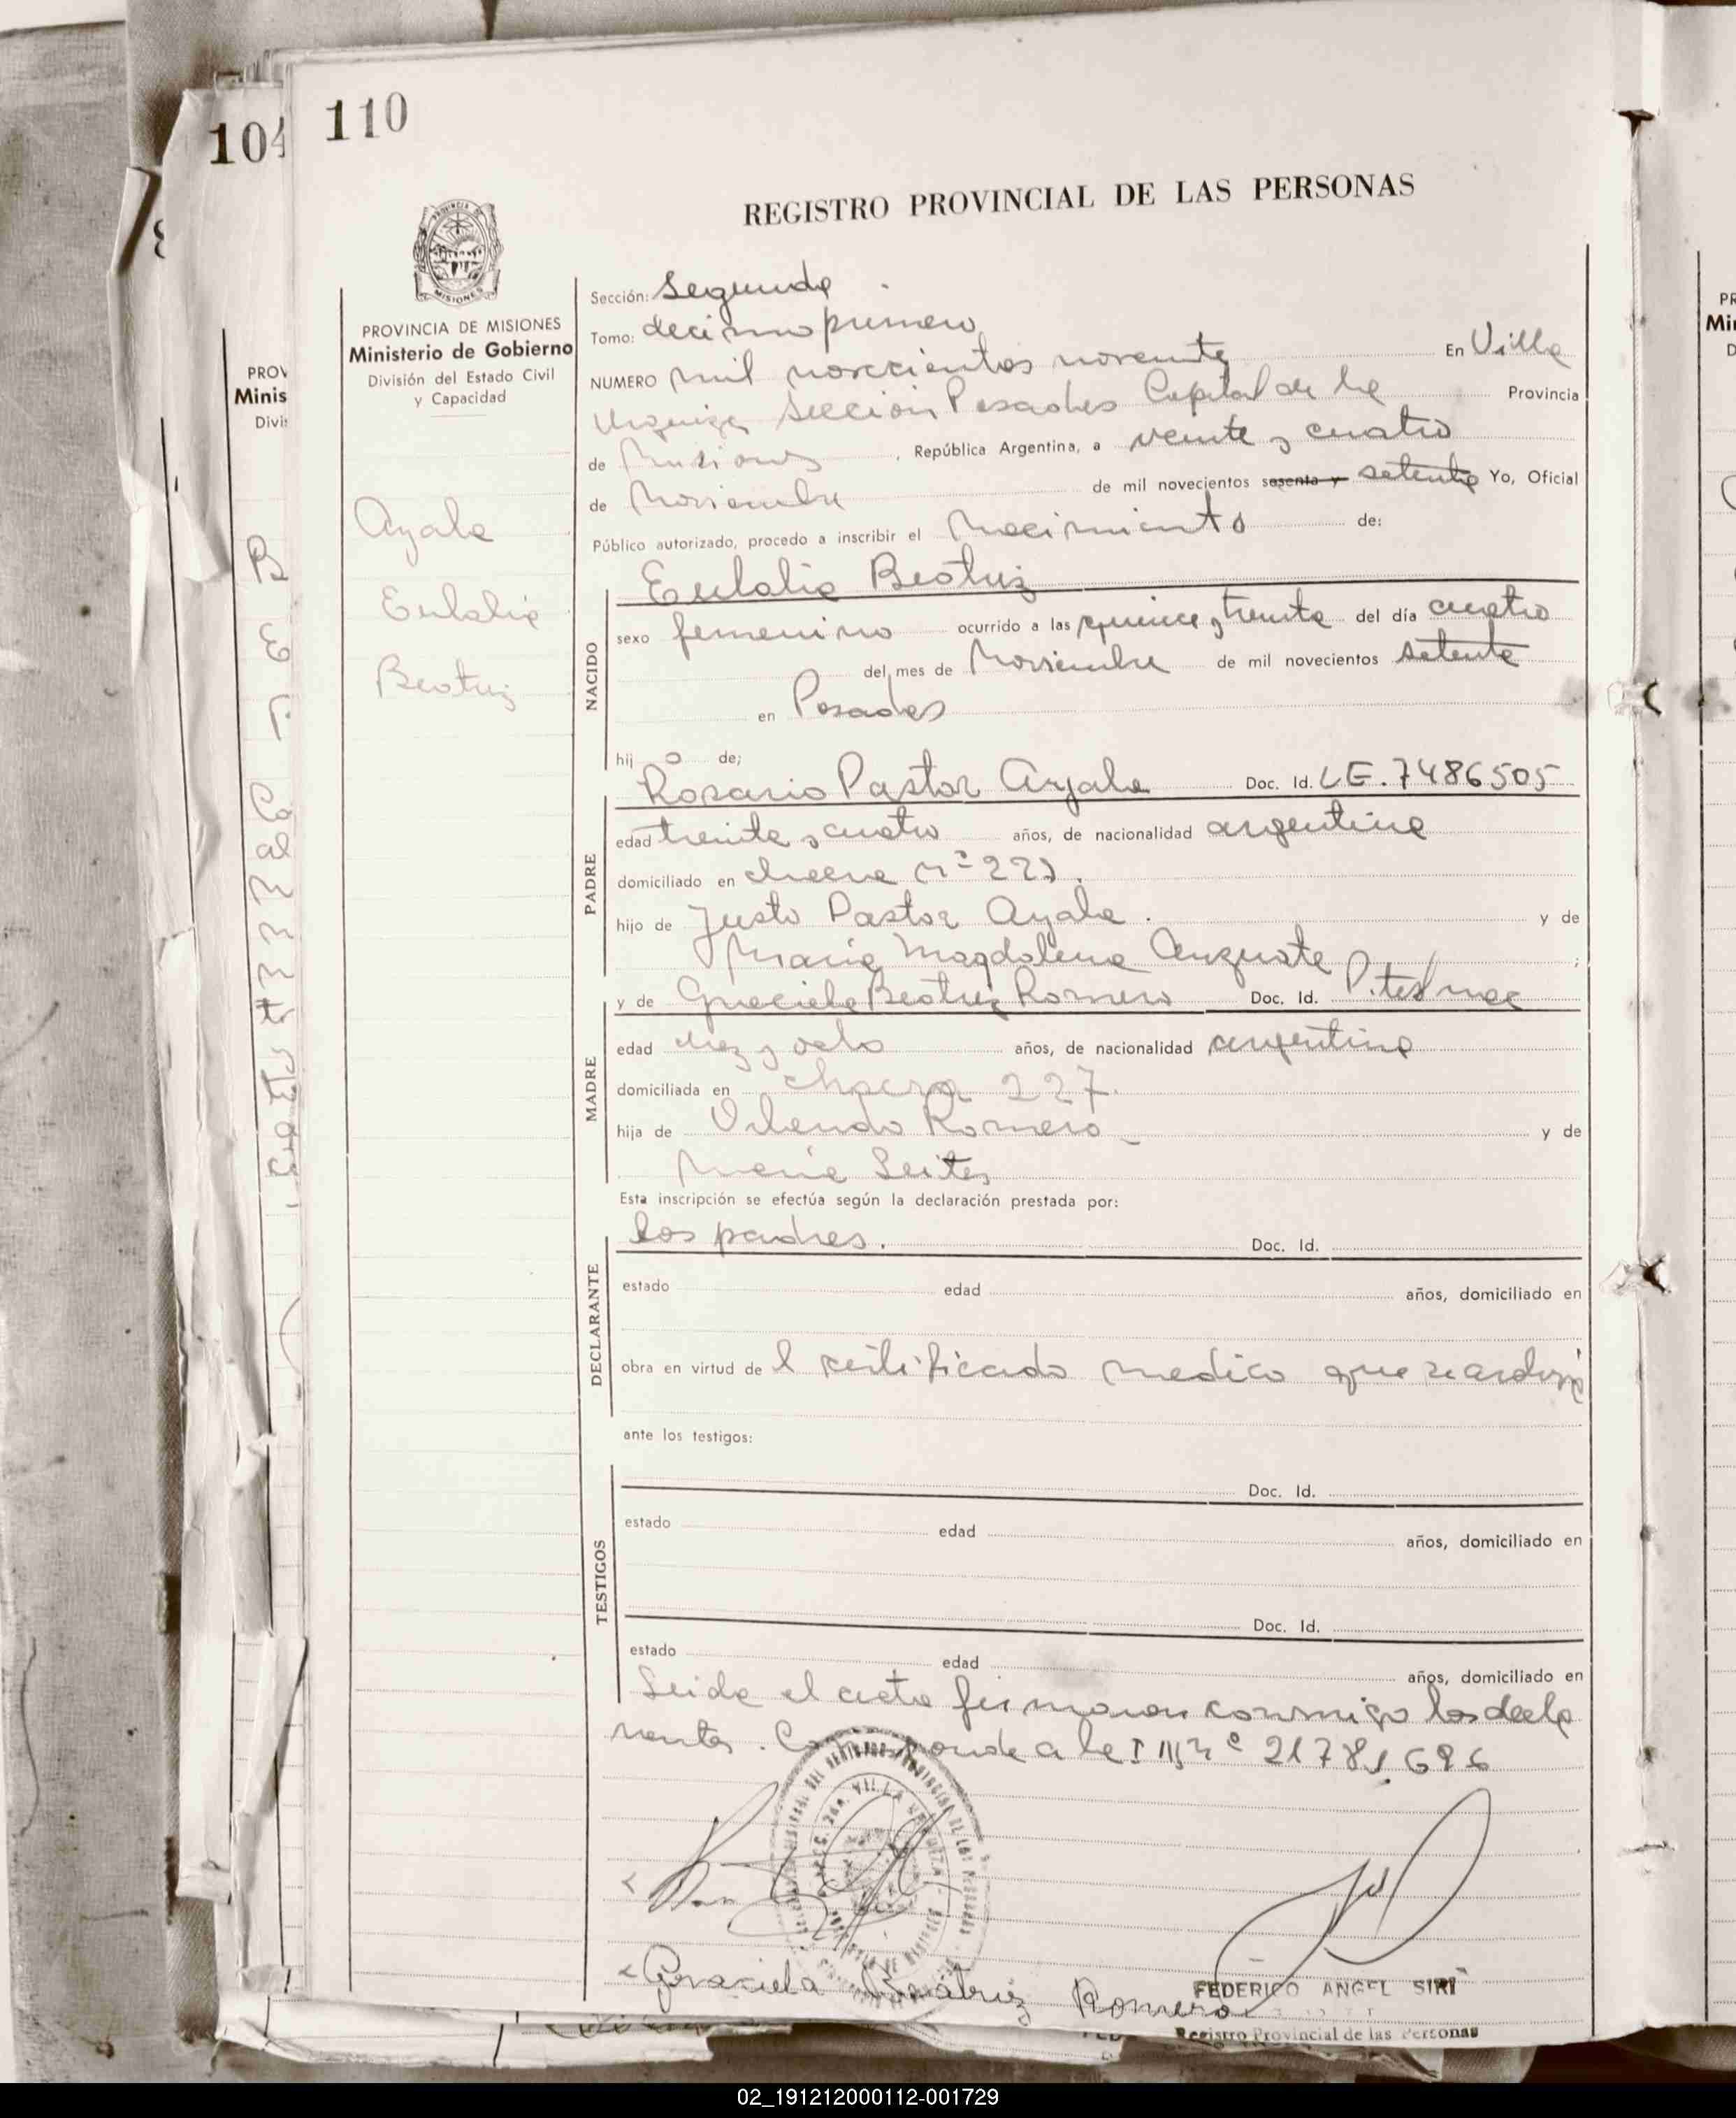 104
110
REGISTRO PROVINCIAL DE LAS PERSONAS
PROVINCIA DE MISIONES
Ministerio de Gobierno
División del Estado Civil
y Capacidad
Ayala
Eulalia
Beatriz
Sección: Segunda
Tomo: decimo primero
NUMERO mil novecientos noventa En Villa
Urquiza Sección Posadas Capital de la Provincia
de Misiones, República Argentina, a veinte y cuatro
de Noviembre de mil novecientos sesenta y setenta Yo, Oficial
Público autorizado, procedo a inscribir el Nacimiento de:
Eulalia Beatriz
NACIDO
sexo femenino ocurrido a las quince y treinta del día cuatro
del mes de Noviembre de mil novecientos setenta
en Posadas
hij a de;
Rosario Pastor Ayala Doc. Id. LE. 7486505
PADRE
edad treinta y cuatro años, de nacionalidad argentina
domiciliado en chacra nº 227.
hijo de Justo Pastor Ayala. y de
María Magdalena ;
y de Graciela Beatriz Romero Doc. Id.
MADRE
edad diez y ocho años, de nacionalidad argentina
domiciliada en chacra 227.
hija de Orlando Romero y de
María Leites
Esta inscripción se efectúa según la declaración prestada por:
los padres. Doc. Id.
DECLARANTE
estado edad años, domiciliado en
obra en virtud de l certificado medico que se archiva
ante los testigos:
Doc. Id.
TESTIGOS
estado edad años, domiciliado en
Doc. Id.
estado edad años, domiciliado en
Leida el acta firmaron conmigo los decla
rantes. Corresponde a la nº 21781696
Graciela Beatriz Romero
FEDERICO ANGEL SIRI
Registro Provincial de las Personas
02_191212000112-001729